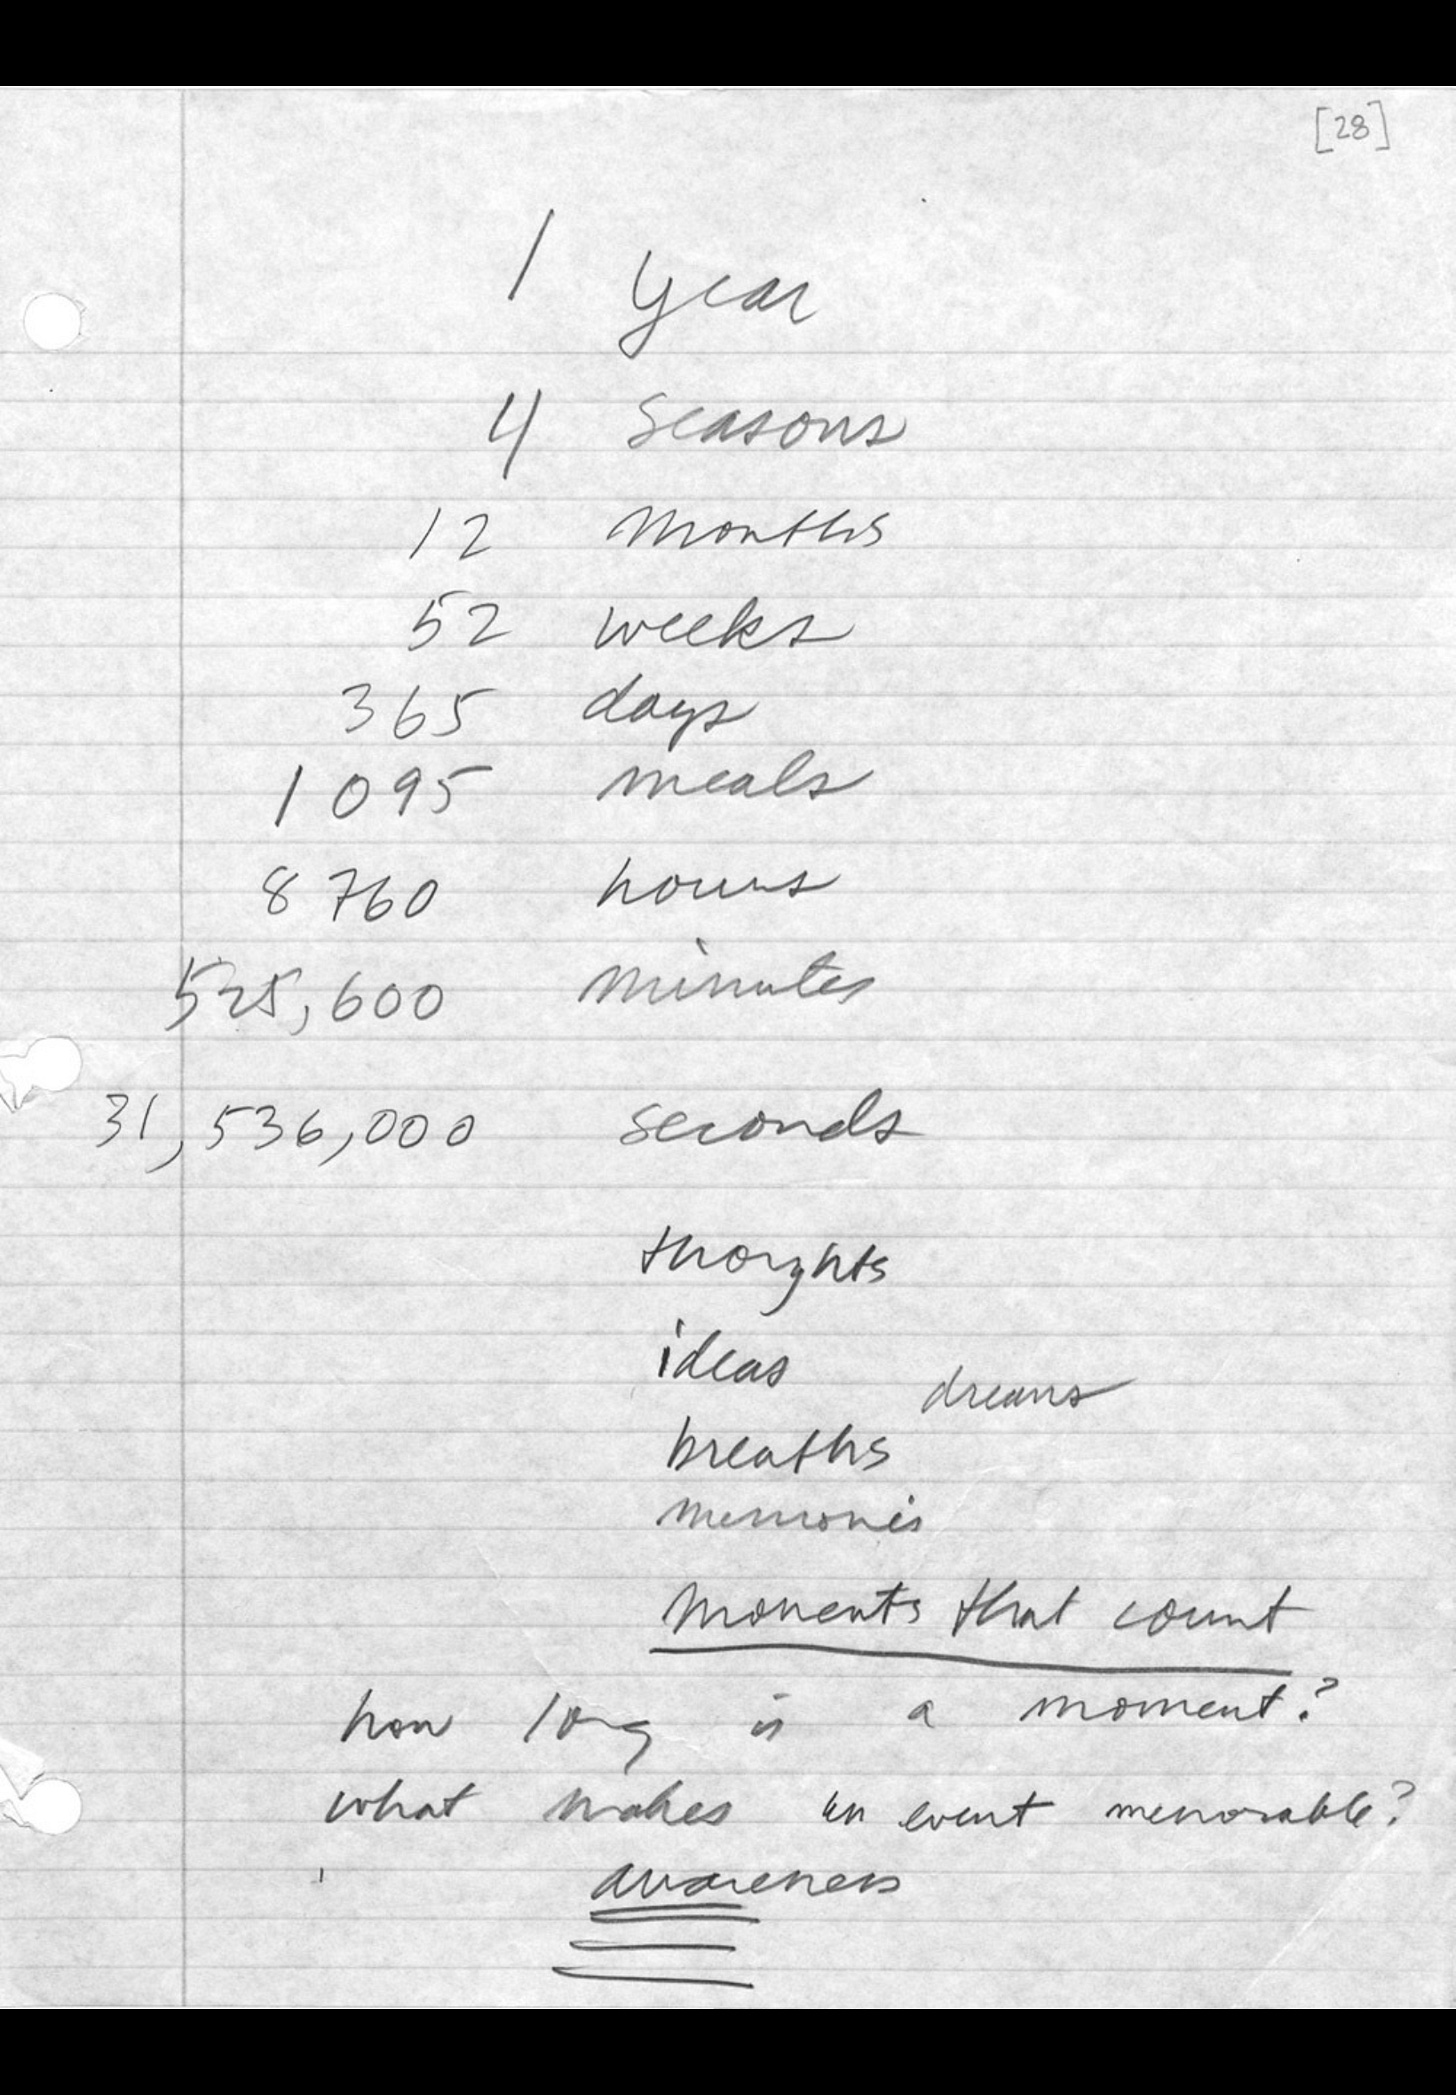 [28]
1 year
4 seasons
12 months
52 weeks
365 days
1095 meals
8760 hours
525,600 minutes
31,536,000 seconds
thoughts
ideas
dreams
breaths
memories
moments that count
how long is a moment?
what makes an event memorable?
awareness